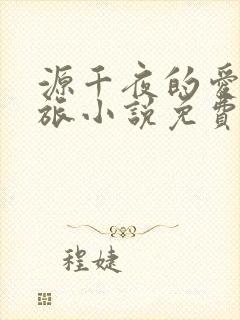 源千夜的愛
旅小説免費
程婕